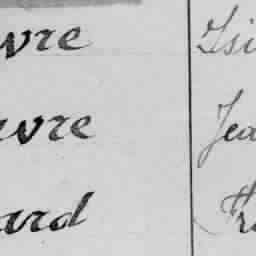 vre Isi
vre Jea
ard Fr